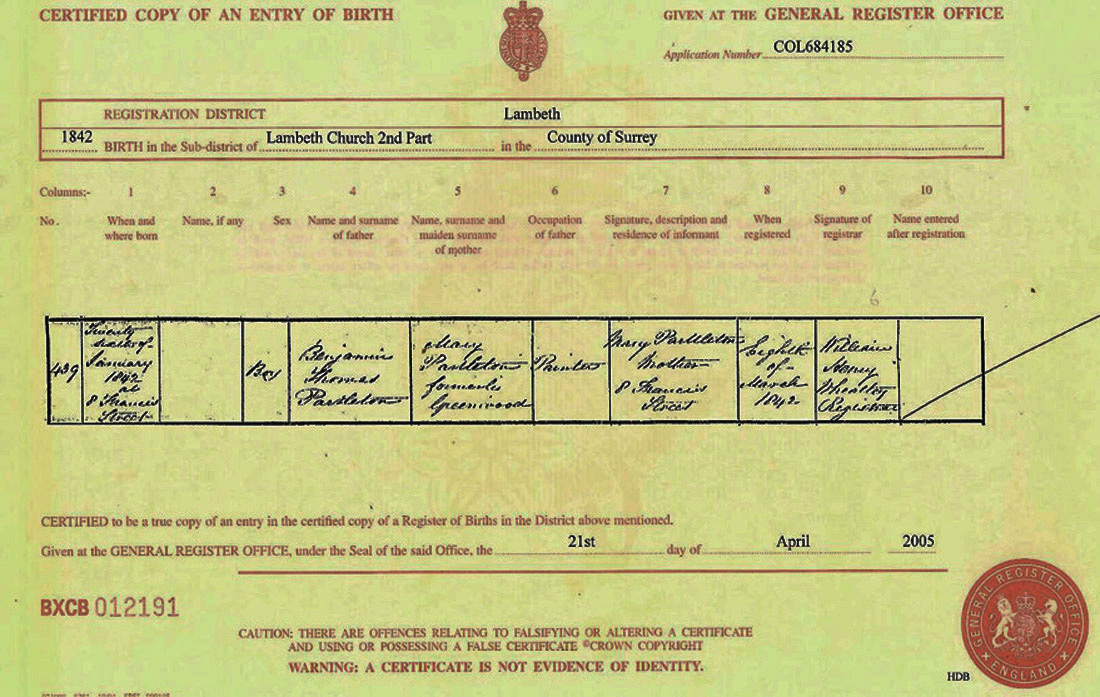 CERTIFIED COPY OF AN ENTRY OF BIRTH
GIVEN AT THE GENERAL REGISTER OFFICE
Application Number COL684185
REGISTRATION DISTRICT Lambeth
1842 BIRTH in the Sub-district of Lambeth Church 2nd Part in the County of Surrey
Columns:- 1 2 3 4 5 6 7 8 9 10
No. When and where born Name, if any Sex Name and surname of father Name, surname and maiden surname of mother Occupation of father Signature, description and residence of informant When registered Signature of registrar Name entered after registration
439
Twenty
January
1842
at
8 Francis
Street
Boy
Benjamin
Thomas
Partleton
Mary
Partleton
formerly
Greenwood
Painter
Mary Partleton
Mother
8 Francis
Street
Eighth
of
March
1842
William
Henry
Wheatley
Registrar
CERTIFIED to be a true copy of an entry in the certified copy of a Register of Births in the District above mentioned.
Given at the GENERAL REGISTER OFFICE, under the Seal of the said Office, the 21st day of April 2005
BXCB 012191
CAUTION: THERE ARE OFFENCES RELATING TO FALSIFYING OR ALTERING A CERTIFICATE
AND USING OR POSSESSING A FALSE CERTIFICATE ©CROWN COPYRIGHT
WARNING: A CERTIFICATE IS NOT EVIDENCE OF IDENTITY.
GENERAL REGISTER OFFICE
ENGLAND
HDB